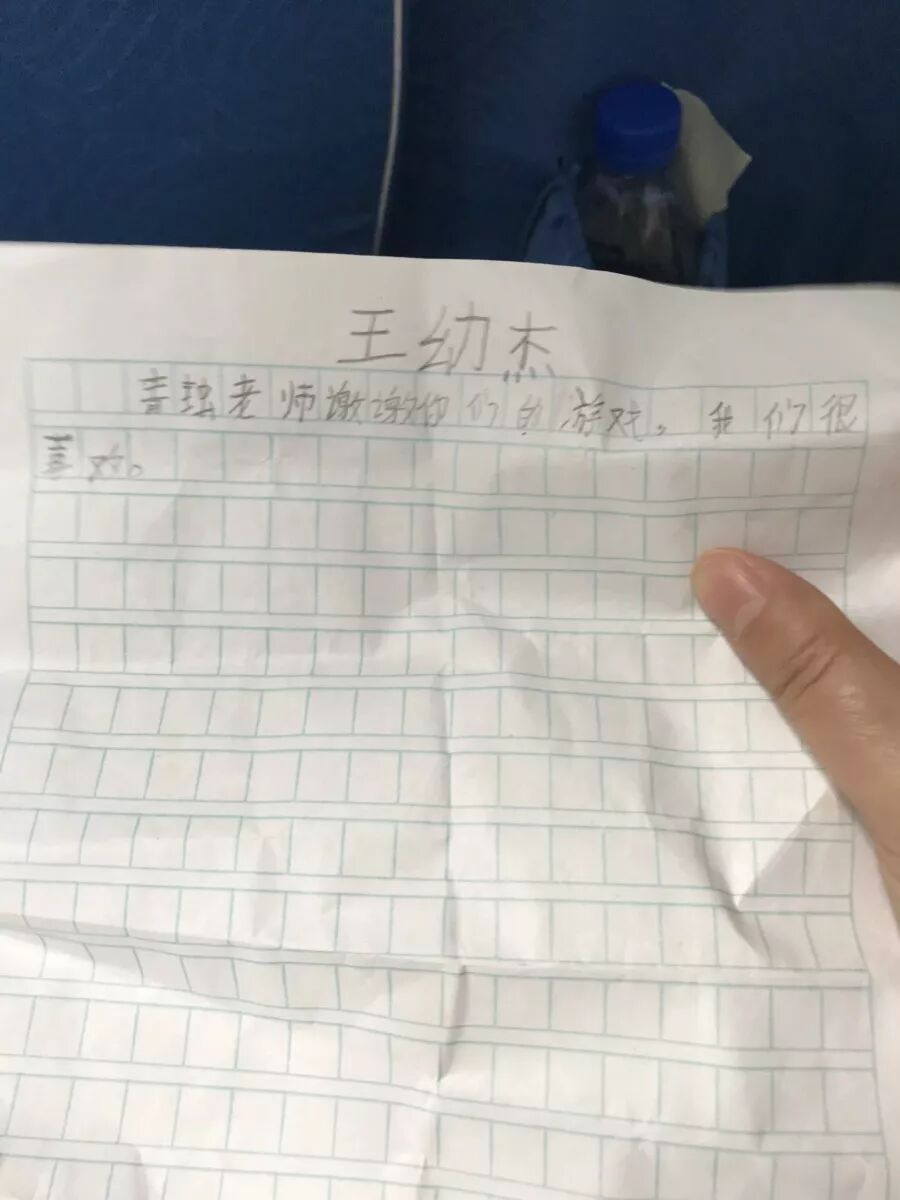 王幼杰
老师谢谢你们的游戏。我们很
喜欢。